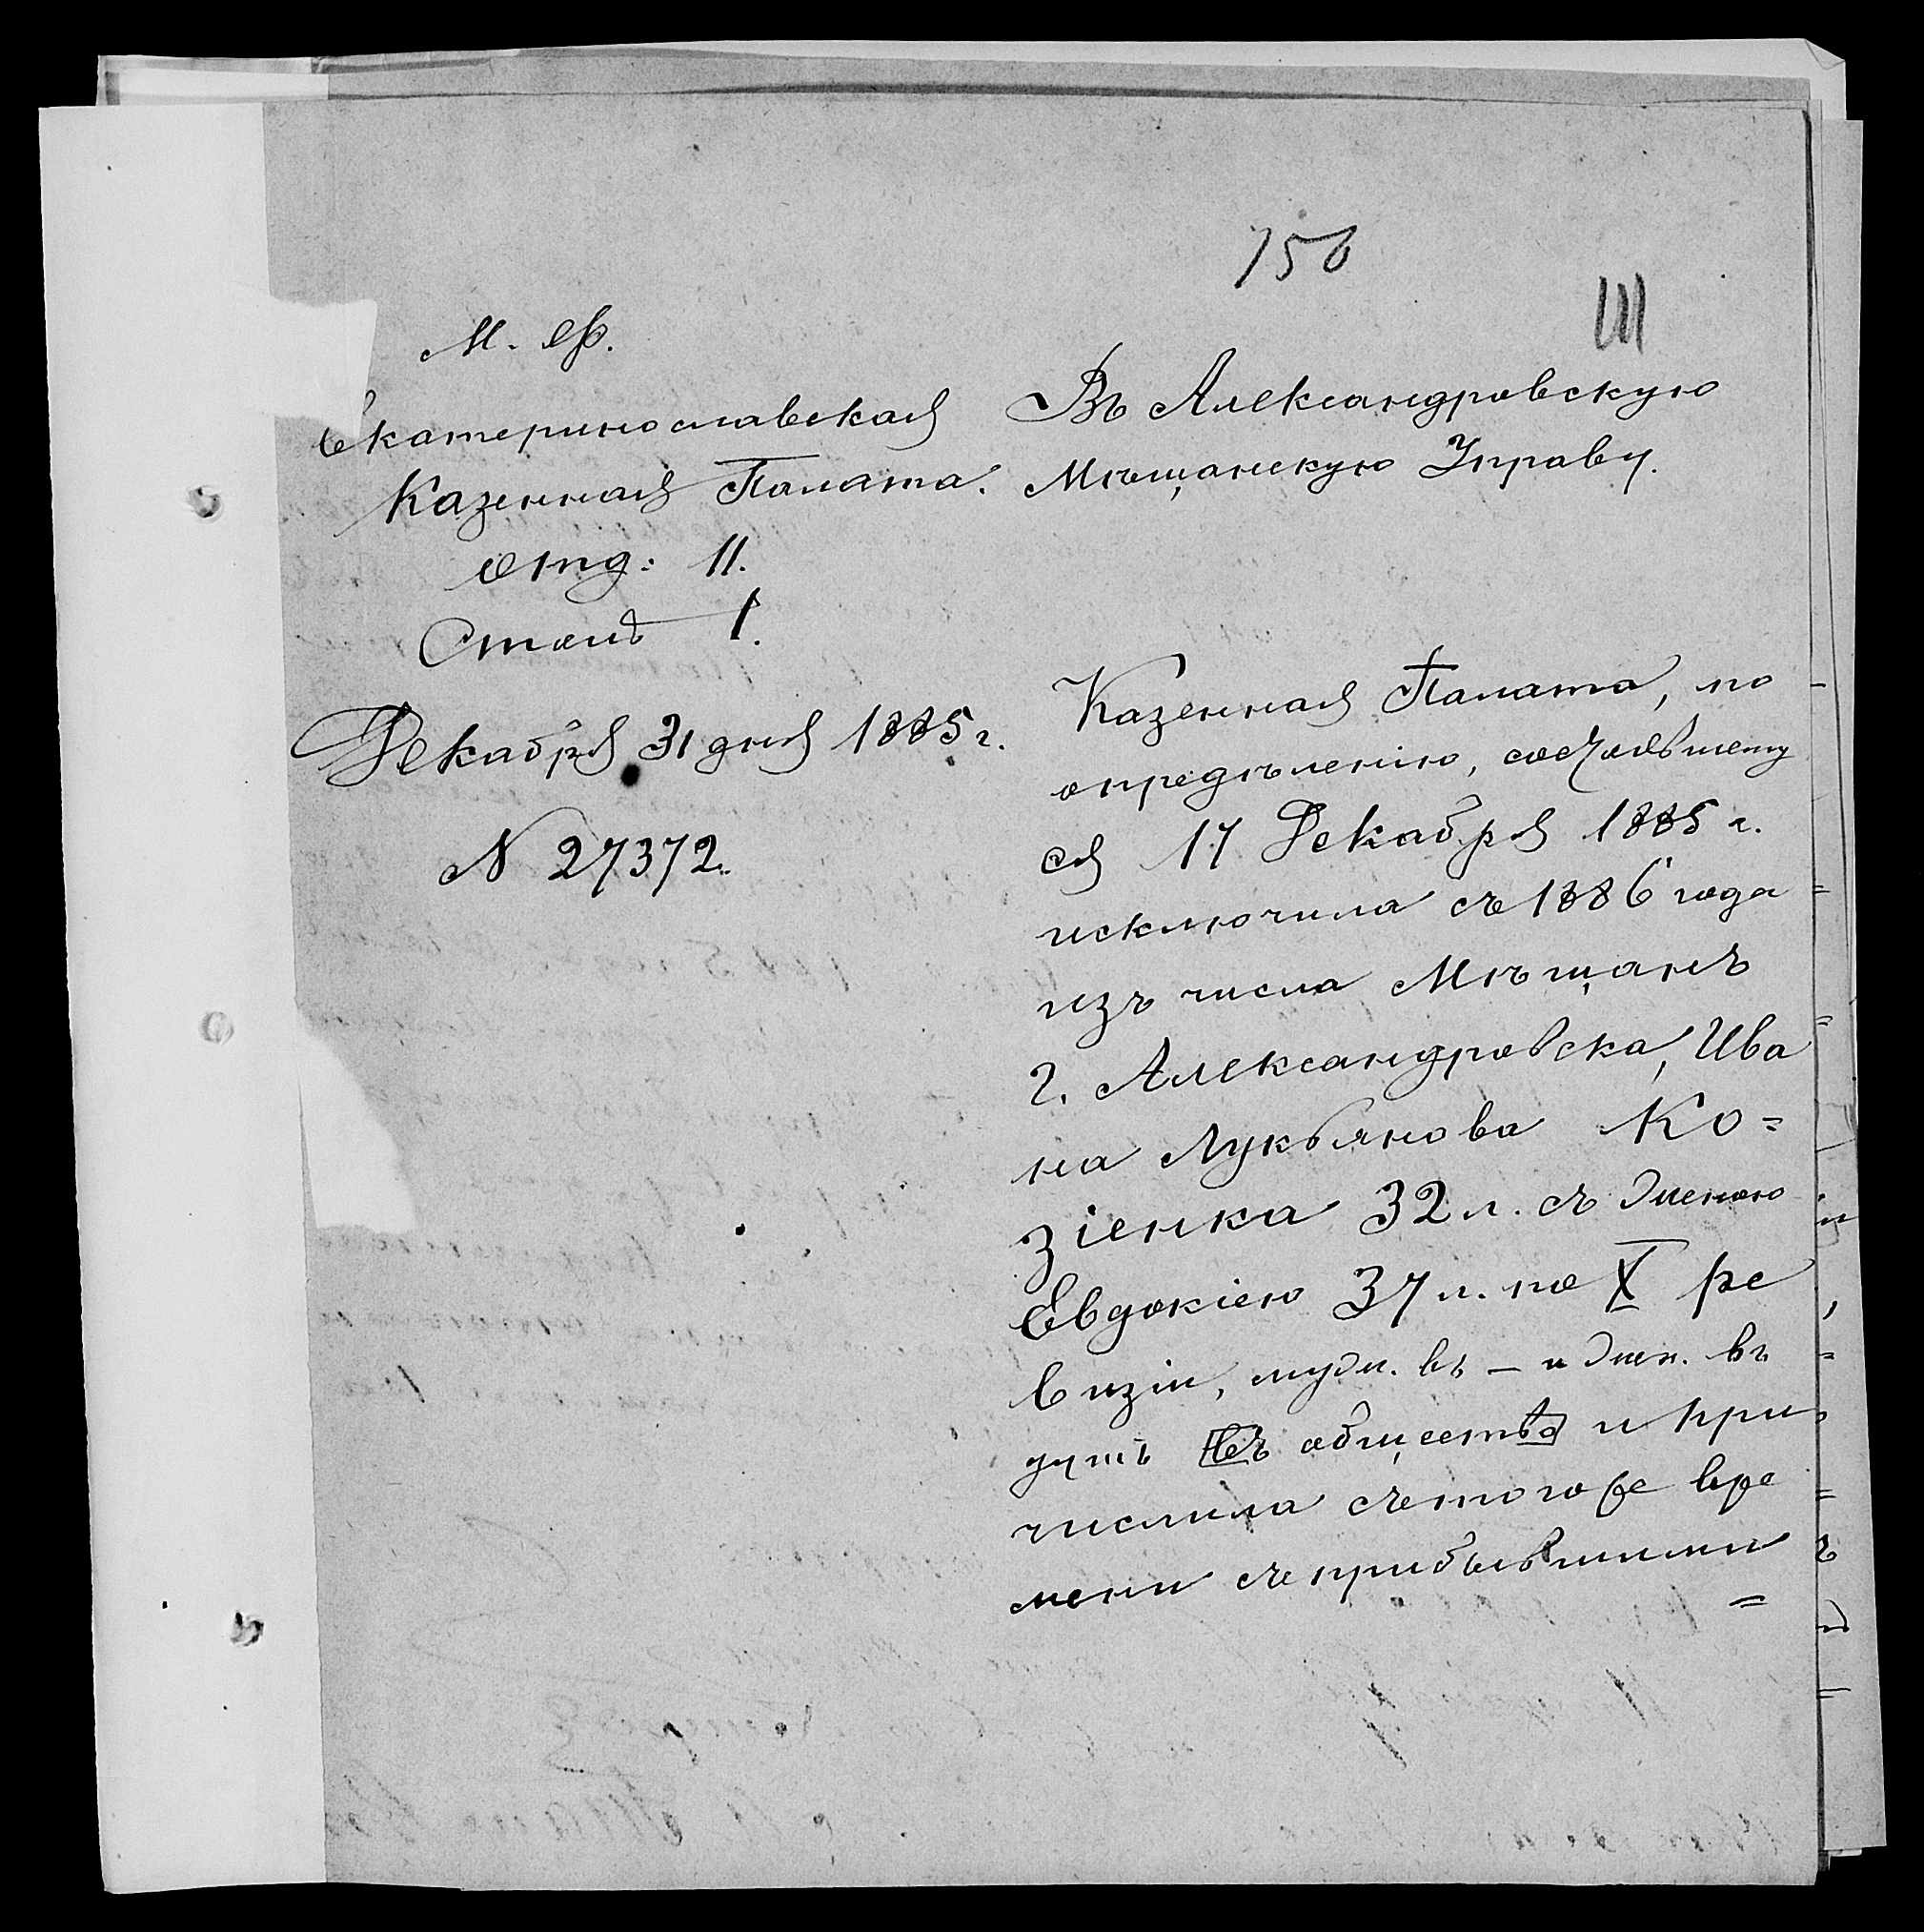 150
III
М. Ф.
Екатеринославская
Казенная Палата.
Отд. II.
Столъ I.
Декабря 31 дня 1885 г.
N 27372.
Въ Александровскую
Мѣщанскую Управу.
Казенная Палата, по
опредѣленію, состоявшему
ся 17 Декабря 1885 г.
исключила съ 1886 года
изъ числа Мѣщанъ
г. Александровска, Ива
на Лукьянова Ко=
зіенка 32 л. съ женою
Евдокіею 37 л. по X ре
визіи, муж. въ — и жен. въ
душъ въ общества и при
числила съ того же вре
мени съ прибывшими
=